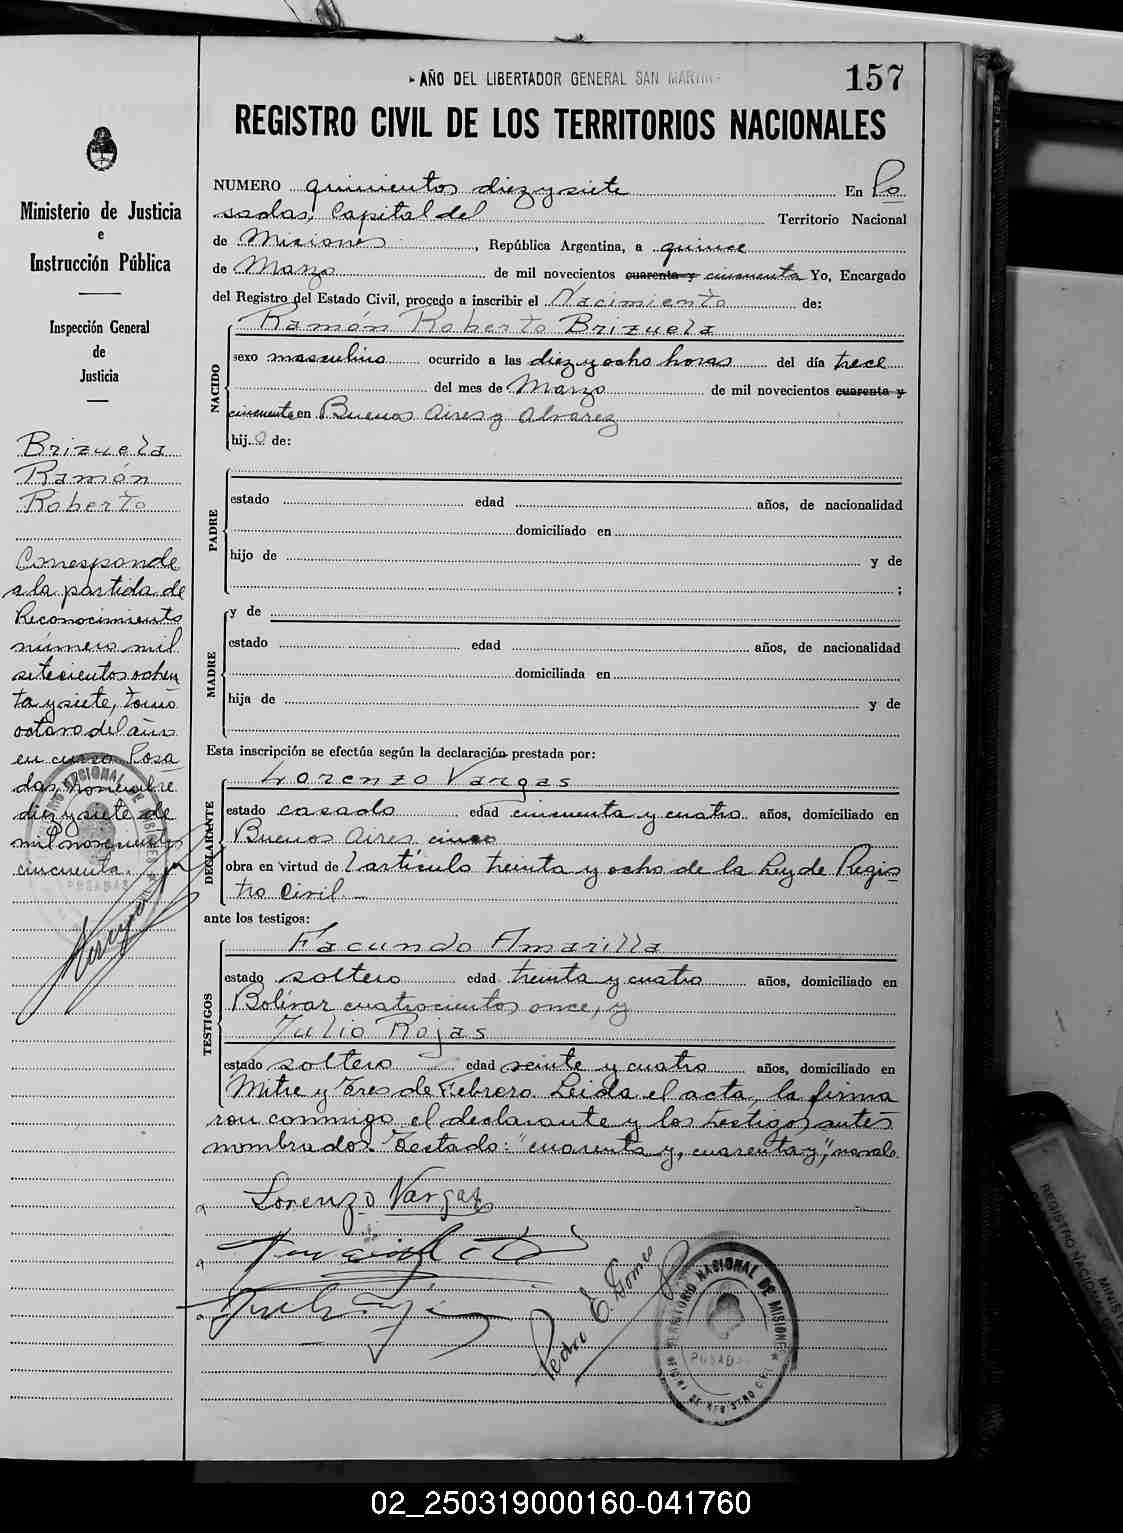 AÑO DEL LIBERTADOR GENERAL SAN MARTIN
157
REGISTRO CIVIL DE LOS TERRITORIOS NACIONALES
Ministerio de Justicia
e
Instrucción Pública
Inspección General
de
Justicia
Brizuela
Ramón
Roberto
Corresponde
a la partida de
Reconocimiento
número mil
setecientos ochen
ta y siete, tomo
octavo del año
en curso. Posa
das, noviembre
diez y siete de
mil novecientos
cincuenta.
NUMERO quinientos diez y siete En Po
sadas, Capital del Territorio Nacional
de Misiones, República Argentina, a quince
de Marzo de mil novecientos cuarenta y cincuenta Yo, Encargado
del Registro del Estado Civil, procedo a inscribir el Nacimiento de:
Ramón Roberto Brizuela
NACIDO
sexo masculino ocurrido a las diez y ocho horas del día trece
del mes de Marzo de mil novecientos cuarenta y
cincuenta en Buenos Aires y Alvarez
hijo de:
PADRE
estado edad años, de nacionalidad
domiciliado en
hijo de y de
;
MADRE
y de
estado edad años, de nacionalidad
domiciliada en
hija de y de
Esta inscripción se efectúa según la declaración prestada por:
DECLARANTE
Lorenzo Vargas
estado casado edad cincuenta y cuatro años, domiciliado en
Buenos Aires cinco
obra en virtud del artículo treinta y ocho de la Ley de Regis
tro Civil.
ante los testigos:
TESTIGOS
Facundo Amarilla
estado soltero edad treinta y cuatro años, domiciliado en
Bolívar cuatrocientos once, y
Julio Rojas
estado soltero edad veinte y cuatro años, domiciliado en
Mitre y Tres de Febrero. Leída el acta, la firma
ron conmigo el declarante y los testigos antes
nombrados. Testado: "cuarenta y, cuarenta y", no vale.
Lorenzo Vargas
Pedro E. Gomez
TERRITORIO NACIONAL DE MISIONES
POSADAS
OFICINA DE REGISTRO CIVIL
02_250319000160-041760